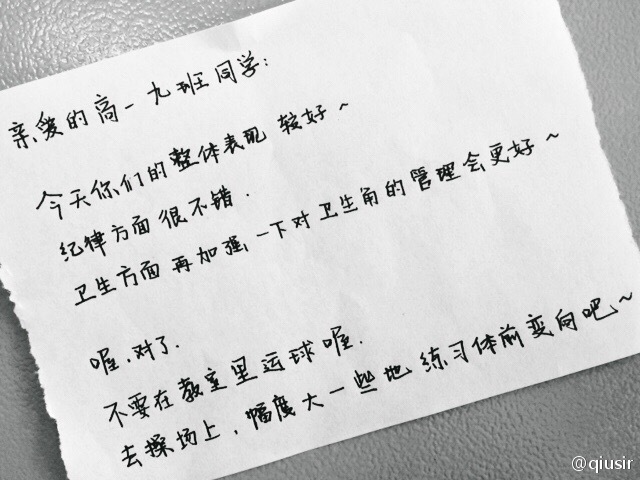 亲爱的高一九班同学:
今天你们的整体表现较好~
纪律方面很不错.
卫生方面再加强一下对卫生角的管理会更好~
喔,对了.
不要在教室里运球喔.
去操场上,幅度大一些地练习体前变向吧~
@qiusir